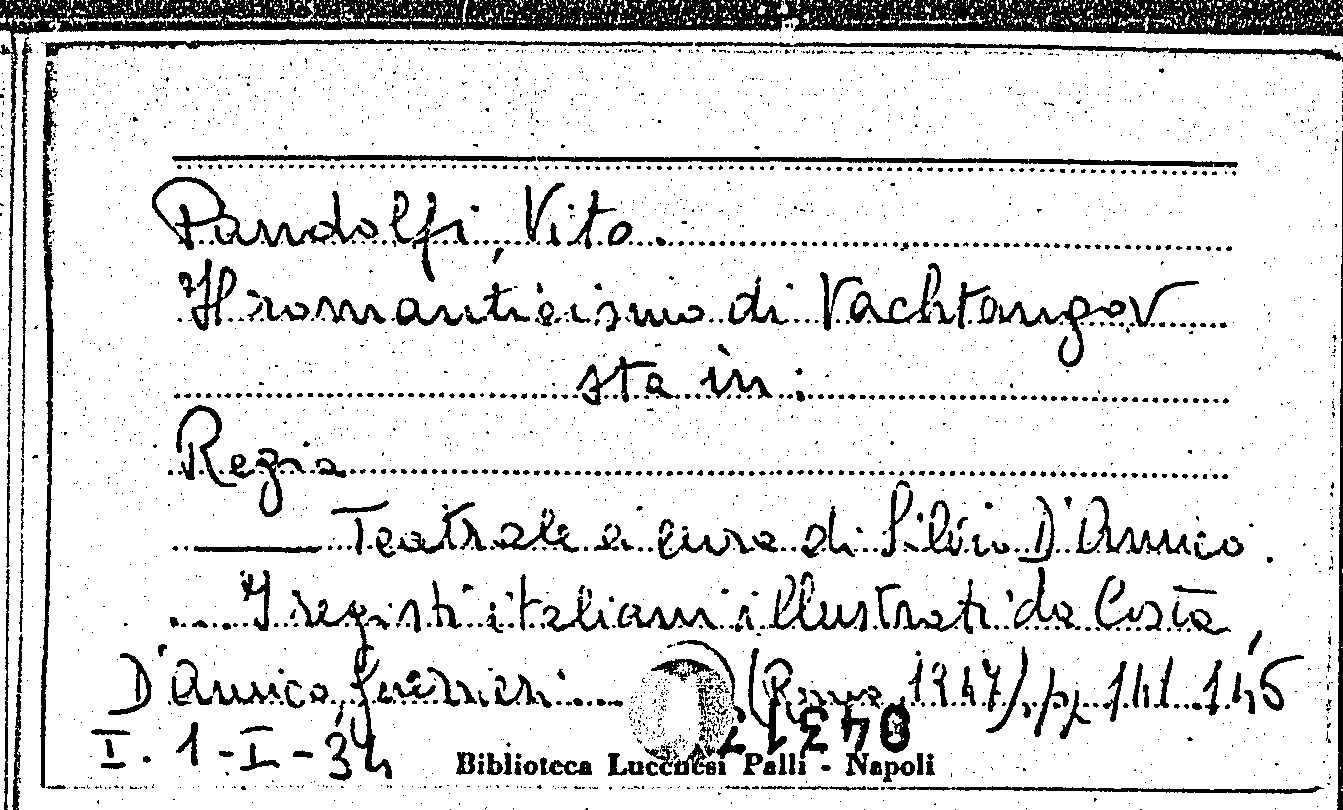 Pandolfi, Vito.
Il romanticismo di Vachtangov
sta in:
Regia
Teatrale a cura di Silvio D'Amico.
... I registi italiani illustrati da Costa,
D'Amico, Guerrieri .... (Roma, 1947), pp. 141-145
I. 1-I-34
Biblioteca Lucchesi Palli - Napoli